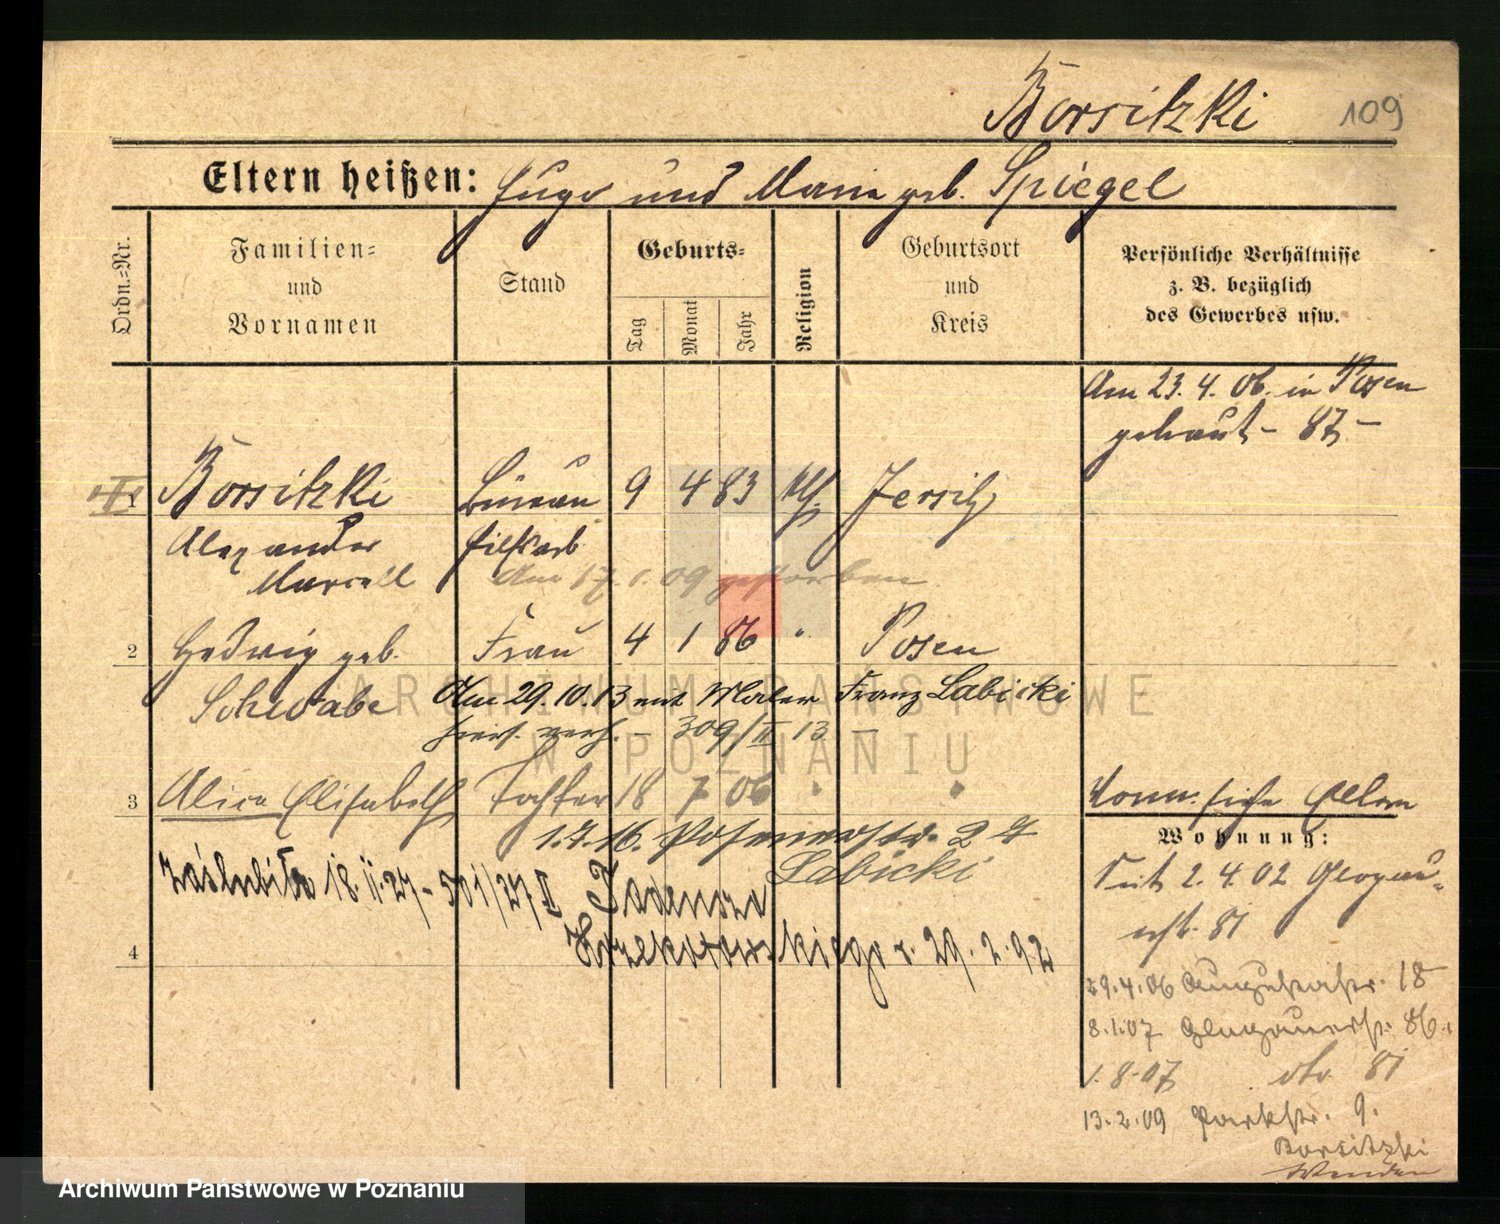 Borsitzki 109
Eltern heißen: Hugo und Maria geb. Spiegel
Ordn.=Nr.
Familien=
und
Vornamen
Stand
Geburts=
Tag
Monat
Jahr
Religion
Geburtsort
und
Kreis
Persönliche Verhältnisse
z. B. bezüglich
des Gewerbes usw.
Am 23. 4. 06. in Posen
getraut - 87 -
1 Borsitzki Bureau 9 4 83 kth. Jersitz
Alexander hilfsarb
Marcell
Am 17. 1. 09 gestorben
2 Hedwig geb. Frau 4 1 86 " Posen
Schwabe Am 29. 10. 13 mit Maler Franz Labicki
hiers. verh. - 309/II 13 -
3 Alice Elisabeth Tochter 18 7 06 " "
Konn. siehe Eltern
1. 7. 16. Posenerstr. 2
Labicki
zaślubiła 18. II. 27 - 501/27 II Tadeusza
4 Strzekotowskiego r. 29. 2. 92
Wohnung:
Seit 2. 4. 02 Glogau=
erst. 81
29. 4. 06 Augustastr. 18
8. 1. 07 Glogauerstr. 86.
1. 8. 07 dto 81
13. 2. 09 Parkstr. 9.
Borsitzki
Wenden
ARCHIWUM PAŃSTWOWE
W POZNANIU
Archiwum Państwowe w Poznaniu